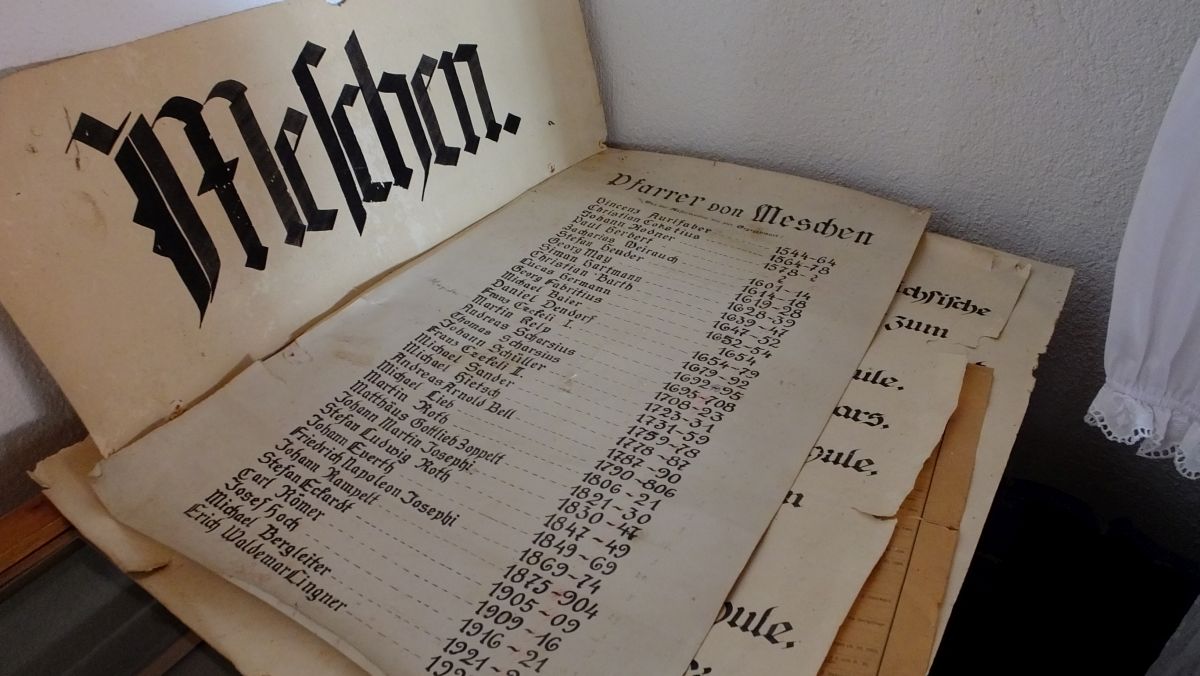 Meschen.
Pfarrer von Meschen
Vincenz Aurifaber 1544-64
Christian 1564-78
Johann Rodner 1578-?
Paul Herbert ?
Zacharius Weirauch 1601-14
Stefan Heuder 1614-18
Georg May 1619-28
Simon Hartmann 1628-39
Christian Barth 1639-41
Lucas Hermann 1642-52
Georg Fabritius 1652-54
Michael Baier 1654
Daniel Dendorf 1654-79
Franz Czekeli I. 1679-92
Martin Kelp 1692-95
Andreas Scharsius 1695-708
Thomas Scharsius 1708-23
Johann Schüller 1723-31
Franz Czekeli II 1731-59
Michael Sander 1759-78
Michael Hietsch 1778-87
Andreas Arnold Bell 1787-90
Michael Lieb 1790-806
Martin Roth 1806-21
Matthäus Gottlieb Zoppelt 1821-30
Johann Martin Josephi 1830-47
Stefan Ludwig Roth 1847-49
Johann Everth 1849-69
Friedrich Napoleon Josephi 1869-74
Johann Rampelt 1875-904
Stefan Eckardt 1905-09
Carl Römer 1909-16
Josef Hoch 1916-21
Michael Bergleiter 1921-
Erich Waldemar Lingner
chsische
zum
ule.
ars.
ule.
n
ule.